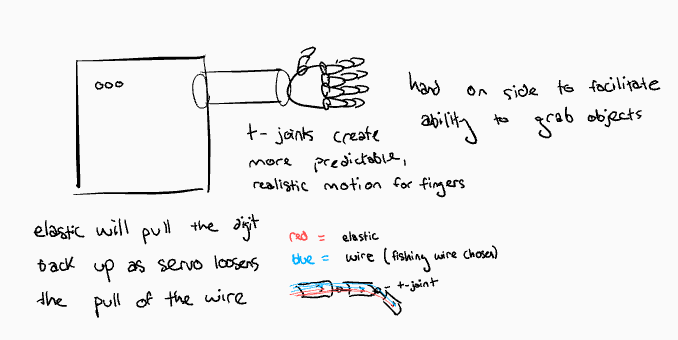 hand on side to facilitate
ability to grab objects
t-joints create
more predictable,
realistic motion for fingers
elastic will pull the digit
back up as servo loosens
the pull of the wire
red = elastic
blue = wire (fishing wire chosen)
t-joint